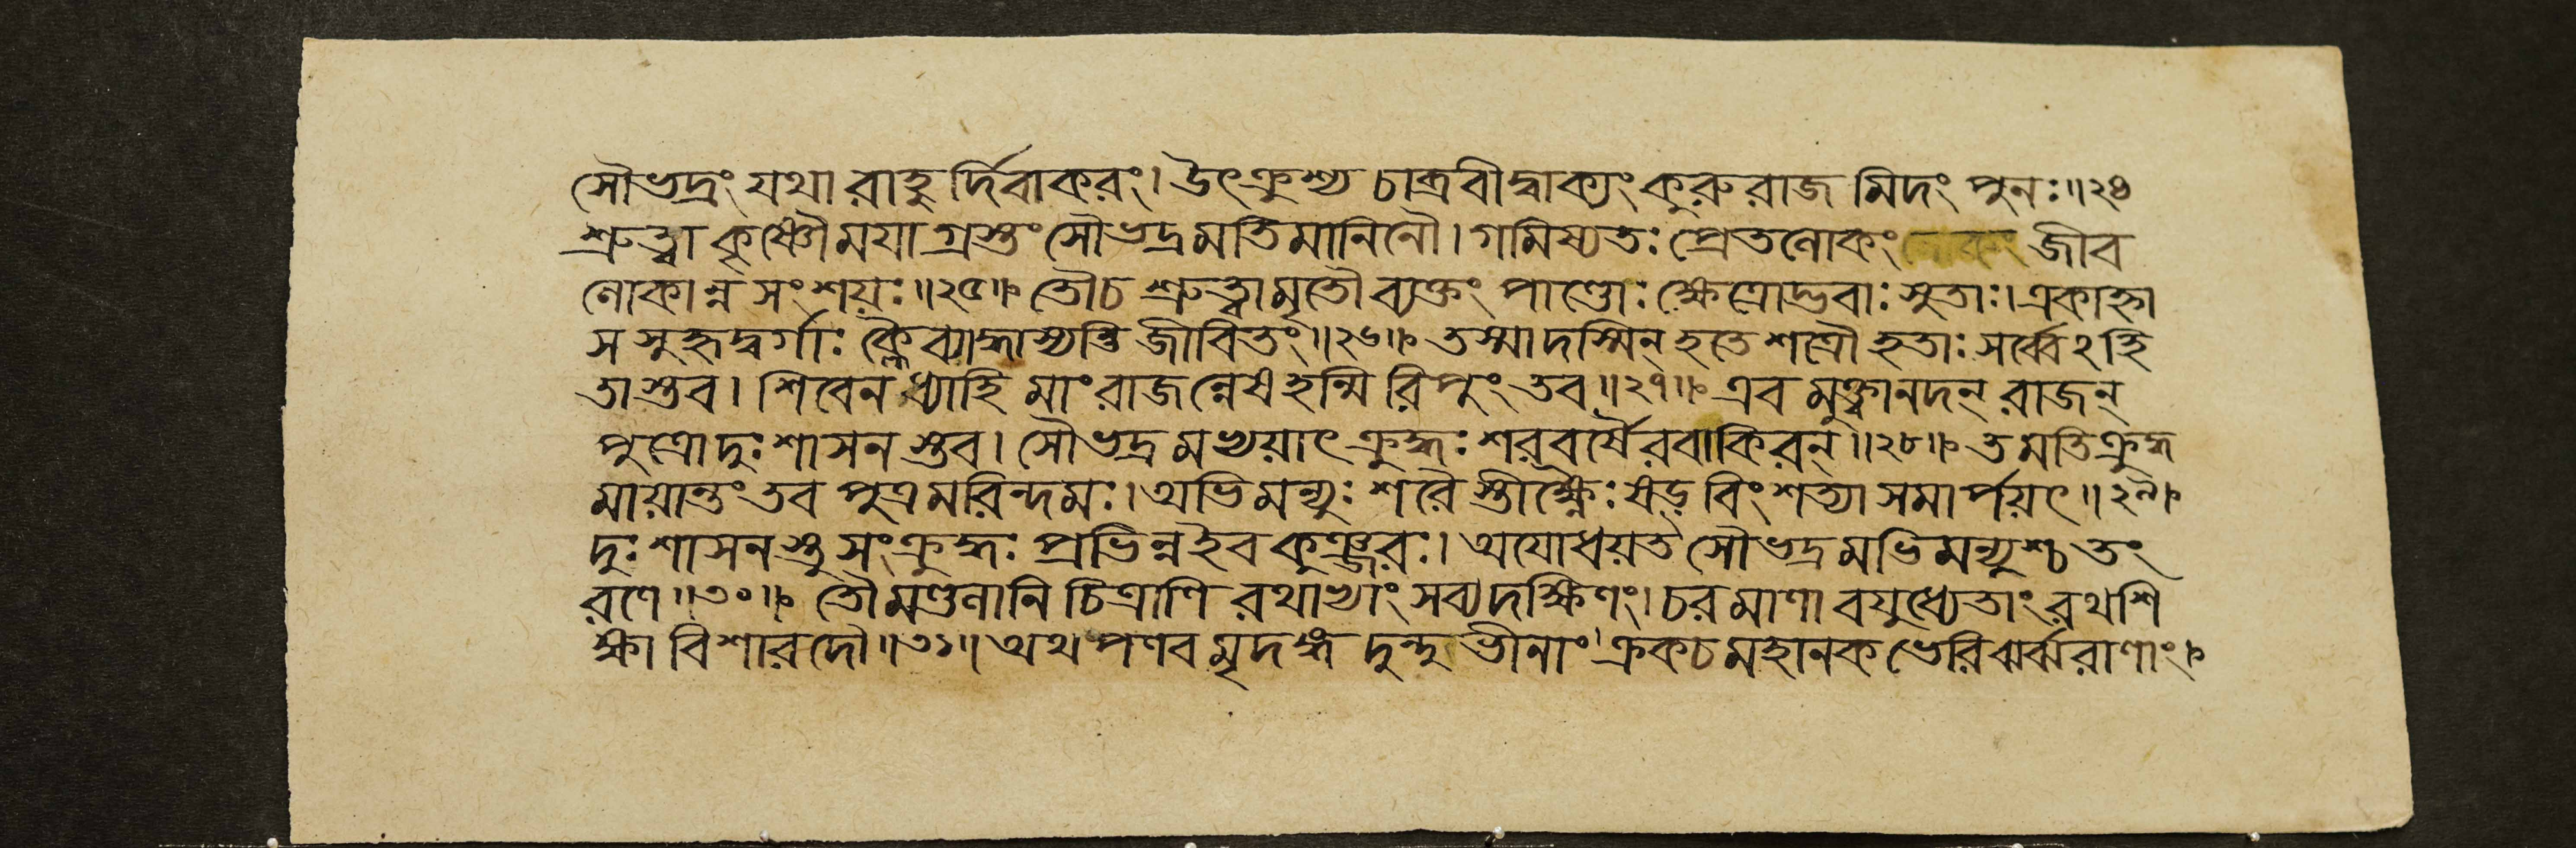 সৌভদ্রং যথা রাহু র্দিবাকরং। উৎক্রুশ্য চাব্রবীদ্বাক্যং কুরুরাজ মিদং পুনঃ॥২৪
শ্রুত্বা কৃষ্ণৌ ময়া গ্রস্তং সৌভদ্র মতিমানিনৌ। গমিষ্যতঃ প্রেতলোকং জীব
লোকান্ন সংশয়ঃ॥২৫॥ তৌ চ শ্রুত্বা মৃতৌ ব্যক্তং পাণ্ডোঃ ক্ষেত্রোদ্ভবাঃ সুতাঃ। একাহ্না
স সুহৃদ্বর্গাঃ ক্লৈব্যাদ্ধাস্যন্তি জীবিতং॥২৬॥ তস্মা দস্মিন্ হতে শত্রৌ হতাঃ সর্ব্বেঽহি
তাস্তব। শিবেন ধ্যাহি মাং রাজন্নেষ হন্মি রিপুং তব॥২৭॥ এব মুক্ত্বানদন্ রাজন্
পুত্রো দুঃশাসন স্তব। সৌভদ্র মভ্যয়াৎ ক্রুদ্ধঃ শরবর্ষৈরবাকিরন্॥২৮॥ ত মতিক্রুদ্ধ
মায়ান্তং তব পুত্র মরিন্দমঃ। অভিমন্যুঃ শরৈ স্তীক্ষ্ণৈঃ ষড়্ বিংশত্যা সমার্পয়ৎ॥২৯।
দুঃশাসনস্তু সংক্রুদ্ধঃ প্রভিন্ন ইব কুঞ্জরঃ। অযোধয়ত সৌভদ্র মভিমন্যুশ্চ তং
রণে॥৩০॥ তৌ মণ্ডলানি চিত্রাণি রথাভ্যাং সব্য দক্ষিণং। চরমাণা বযুধ্যেতাং রথশি
ক্ষা বিশারদৌ॥৩১॥ অথ পণব মৃদঙ্গ দুন্দুভীনাং ক্রকচ মহানক ভেরি ঝর্ঝরাণাং।